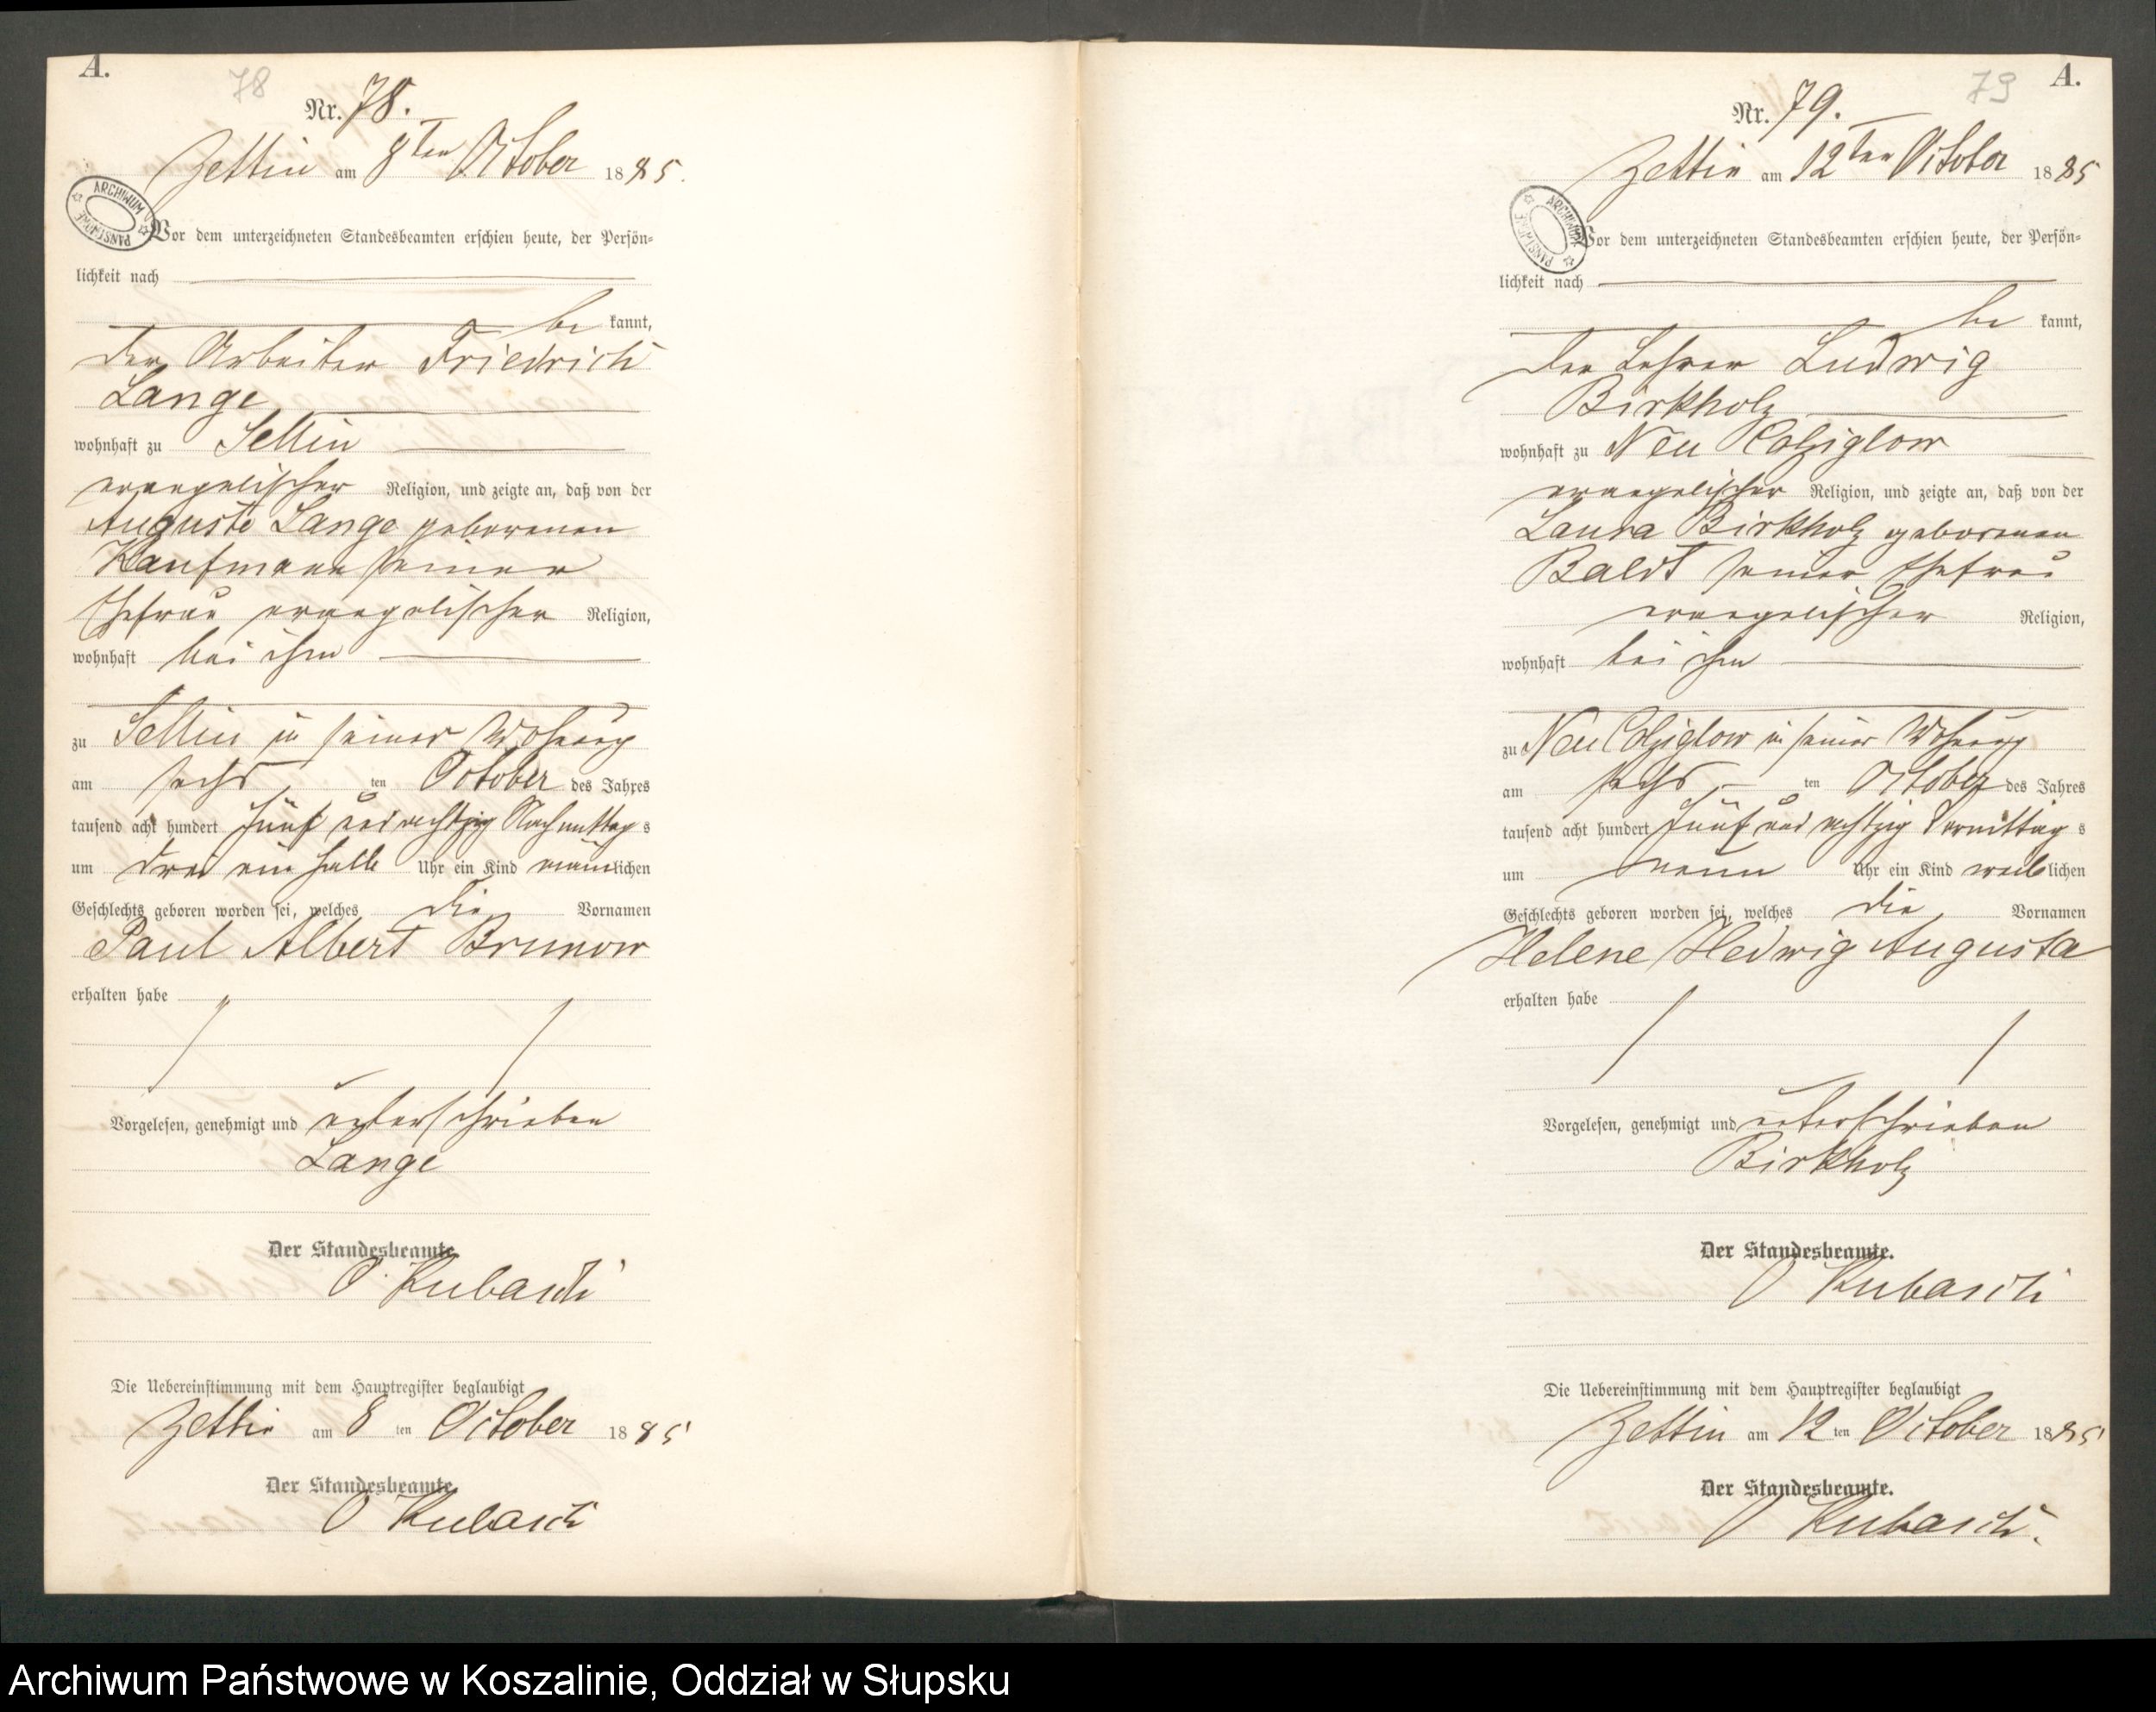 A.
78
Nr. 78.
Zettin am 8ten October 1885.
ARCHIWUM PAŃSTWOWE
Vor dem unterzeichneten Standesbeamten erschien heute, der Persön-
lichkeit nach
be kannt,
der Arbeiter Friedrich
Lange
wohnhaft zu Sellin
evangelischer Religion, und zeigte an, daß von der
Auguste Lange geborenen
Kaufmann seiner
Ehefrau evangelischer Religion,
wohnhaft bei ihm
zu Sellin in seiner Wohnung
am sechs ten October des Jahres
tausend acht hundert fünf und achtzig Nachmittag s
um drei ein halb Uhr ein Kind männlichen
Geschlechts geboren worden sei, welches die Vornamen
Paul Albert Brunow
erhalten habe
Vorgelesen, genehmigt und unterschrieben
Lange
Der Standesbeamte.
O. Kubasch
Die Uebereinstimmung mit dem Hauptregister beglaubigt
Zettin am 8 ten October 1885
Der Standesbeamte.
O Kubasch
79
A.
Nr. 79.
Zettin am 12ten October 1885
ARCHIWUM PAŃSTWOWE
Vor dem unterzeichneten Standesbeamten erschien heute, der Persön-
lichkeit nach
be kannt,
der Lehrer Ludwig
Birkholz
wohnhaft zu Neu Colziglow
evangelischer Religion, und zeigte an, daß von der
Laura Birkholz geborenen
Baldt seiner Ehefrau
evangelischer Religion,
wohnhaft bei ihm
zu Neu Colziglow in seiner Wohnung
am sechs ten October des Jahres
tausend acht hundert fünf und achtzig Vormittag s
um neun Uhr ein Kind weiblichen
Geschlechts geboren worden sei, welches die Vornamen
Helene Hedwig Augusta
erhalten habe
Vorgelesen, genehmigt und unterschrieben
Birkholz
Der Standesbeamte.
O Kubasch
Die Uebereinstimmung mit dem Hauptregister beglaubigt
Zettin am 12 ten October 1885
Der Standesbeamte.
O Kubasch.
Archiwum Państwowe w Koszalinie, Oddział w Słupsku